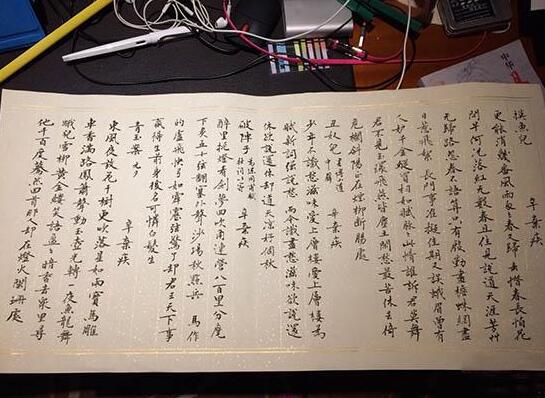 摸魚兒 辛棄疾
更能消幾番風雨匆匆春又歸去惜春長怕花
開早何況落紅無數春且住見說道天涯芳艸
無歸路怨春不語算只有殷勤畫檐蛛網盡
日惹飛絮 長門事準擬佳期又誤蛾眉曾有
人妒千金縱買相如賦脈脈此情誰訴君莫舞
君不見玉環飛燕皆塵土閑愁最苦休去倚
危欄斜陽正在煙柳斷腸處
丑奴兒 書博山道中壁 辛棄疾
少年不識愁滋味愛上層樓愛上層樓為
賦新詞強說愁 而今識盡愁滋味欲說還
休欲說還休卻道天涼好個秋
破陣子 為陳同甫賦壯詞以寄 辛棄疾
醉里挑燈看劍夢回吹角連營八百里分麾
下炙五十弦翻塞外聲沙場秋點兵 馬作
的盧飛快弓如霹靂弦驚了卻君王天下事
贏得生前身後名可憐白髮生
青玉案 元夕 辛棄疾
東風夜放花千樹更吹落星如雨寶馬雕
車香滿路鳳簫聲動玉壺光轉一夜魚龍舞
蛾兒雪柳黃金縷笑語盈盈暗香去眾里尋
他千百度驀然回首那人卻在燈火闌珊處
中华